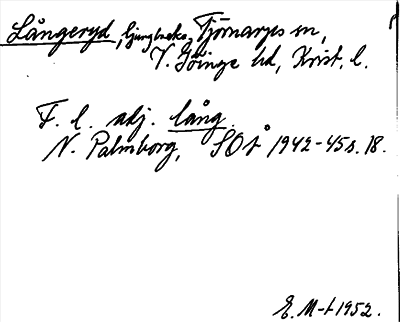 Långeryd, ljungbacke, Tjörnarps sn,
V. Göinge hd, Krist. l.
F. l. adj. lång.
N. Palmborg, SOÅ 1942-45 s. 18.
E. M-t 1952.